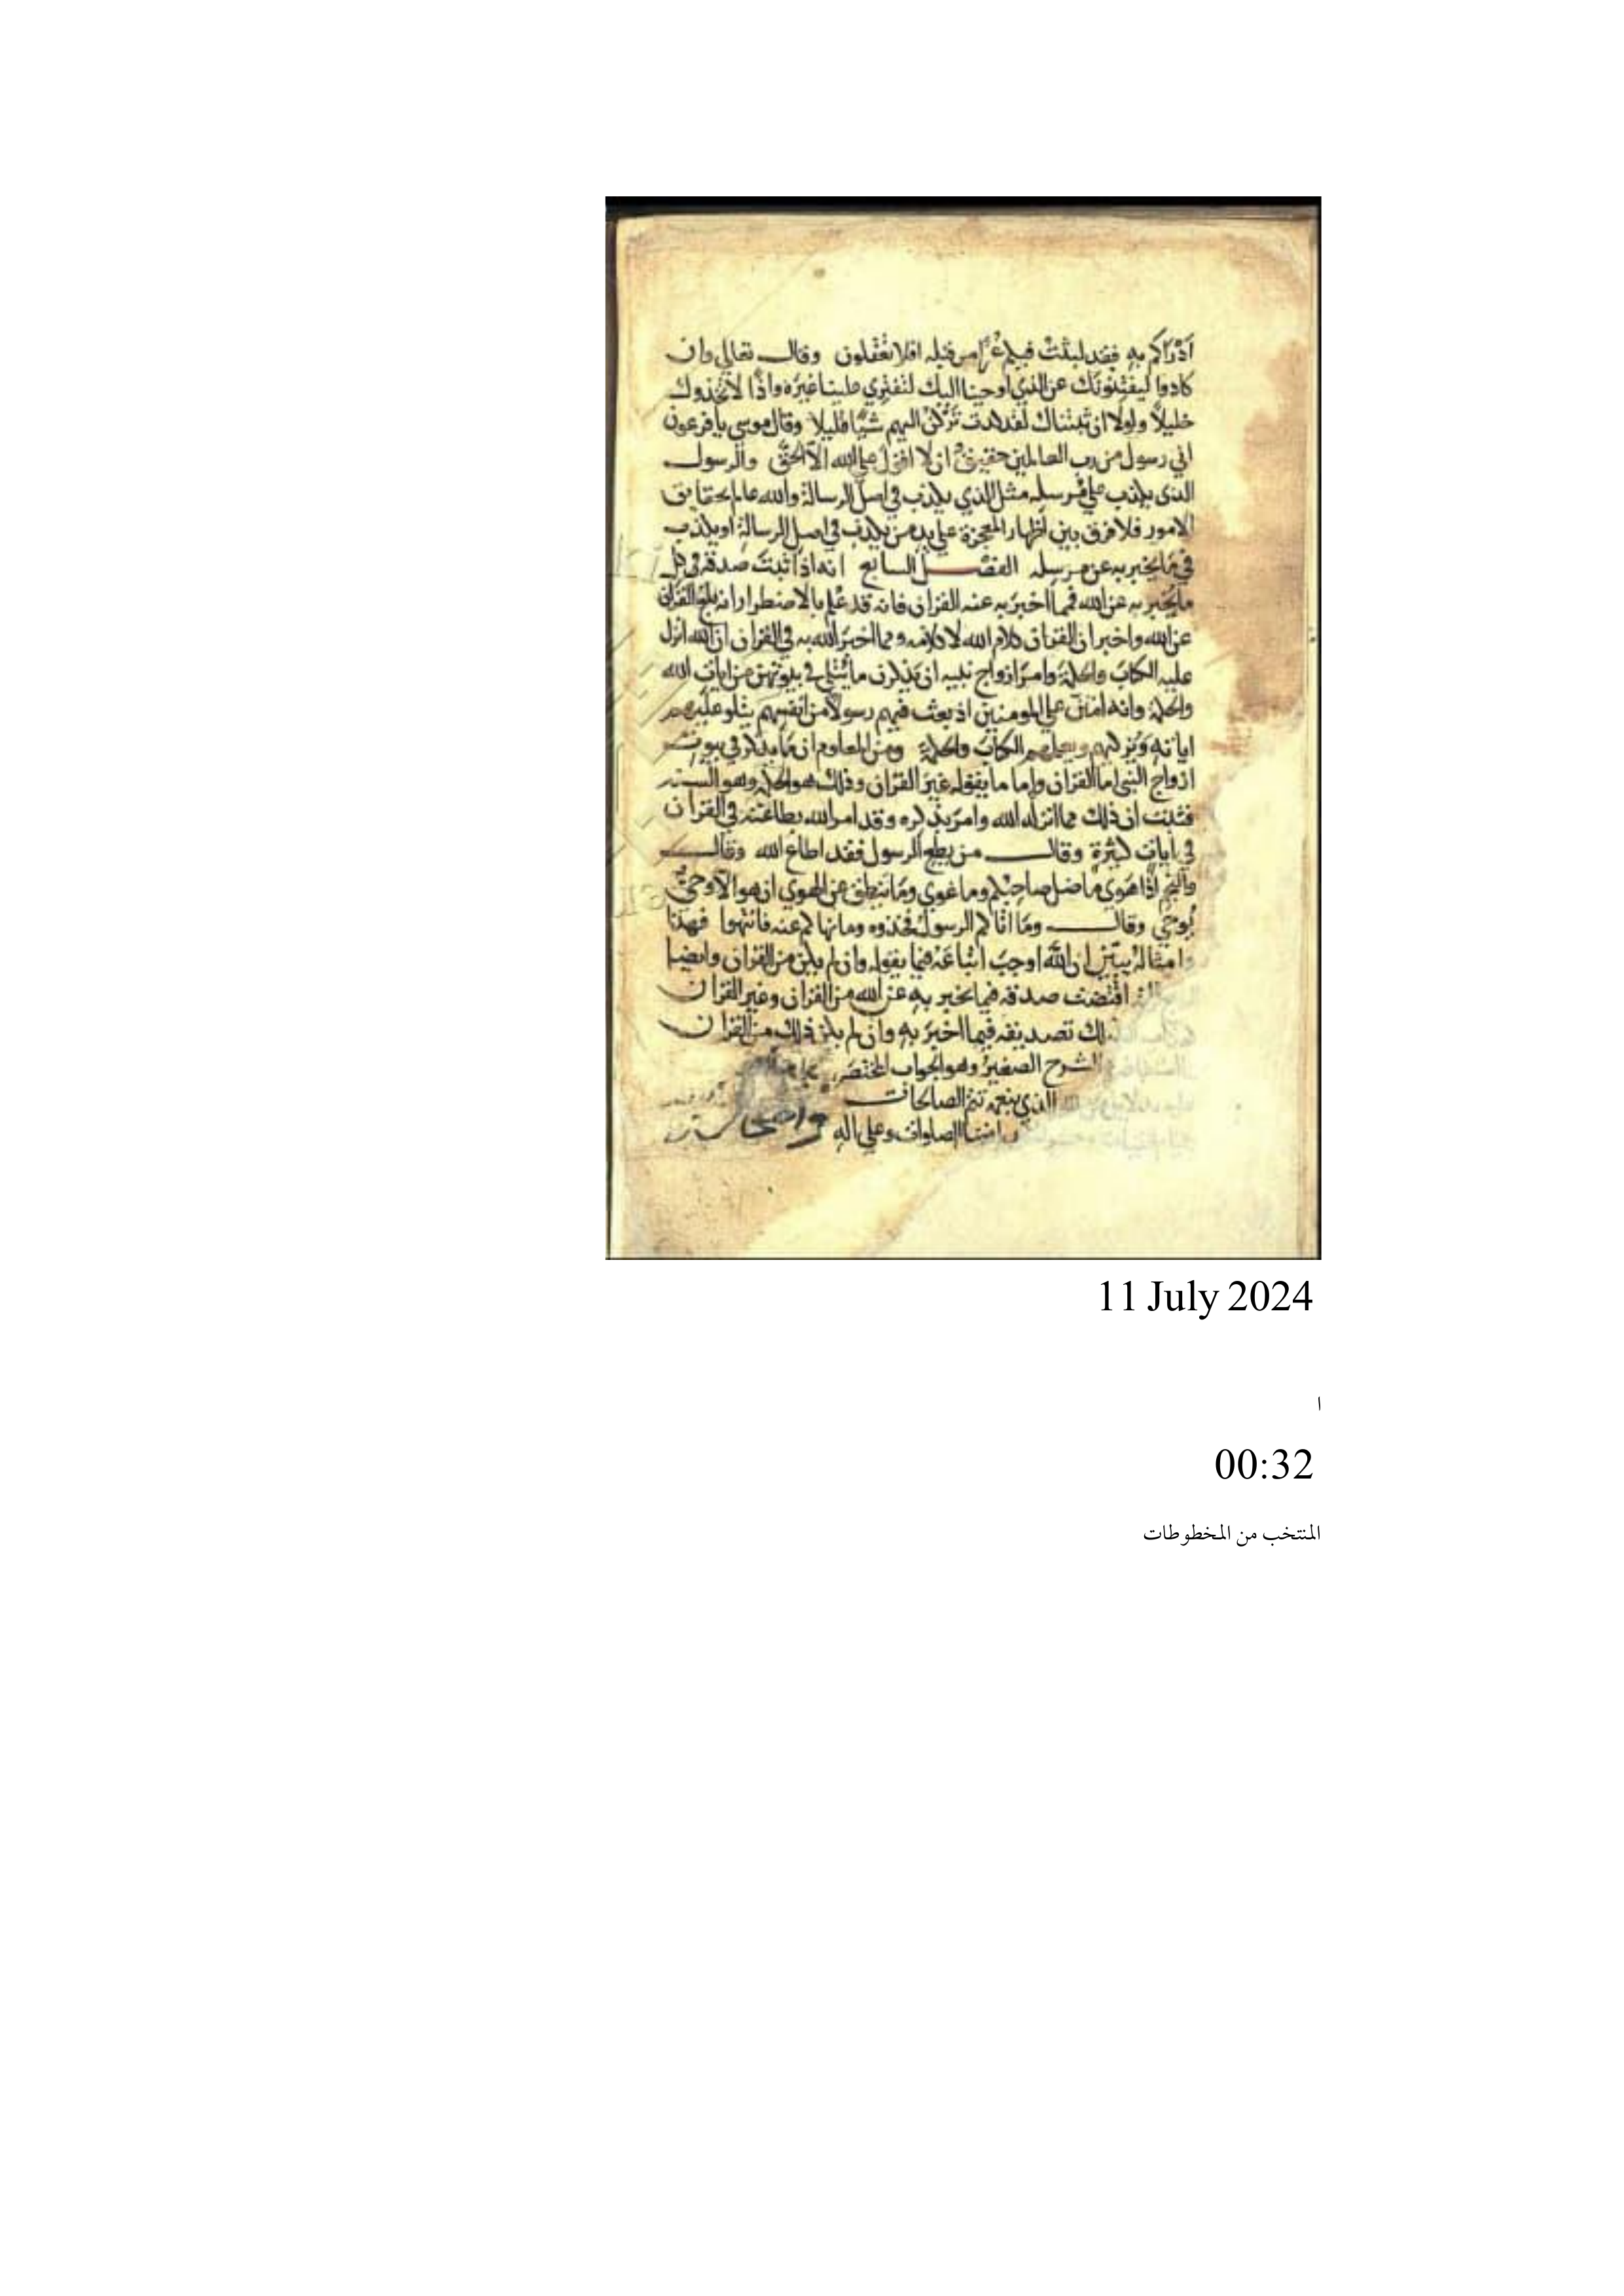 أدراكم به فقد لبثت فيكم عمرا من قبله افلا تعقلون وقال تعالي وان
كادوا ليفتنونك عن الذي اوحينا اليك لتفتري علينا غيره واذا لاتخذوك
خليلا ولولا ان ثبتناك لقد كدت تركن اليهم شيا قليلا وقال موسي يا فرعون
اني رسول من رب العالمين حقيق علي ان لا اقول علي الله الا الحق والرسول
الذي يكذب علي مرسله مثل الذي يكذب في اصل الرسالة والله عالم بحقايق
الامور فلا فرق بين اظهار المعجزة علي يد من يكذب في اصل الرسالة او يكذب
في ما يخبر به عن مرسله الفصل السابع انه اذا ثبت صدقه في كل
ما يخبر به عن الله فمما اخبر به عنه القران فانه قد علم بالاضطرار انه بلغ القران
عن الله واخبر ان القران كلام الله لا كلامه ومما اخبر الله به في القران ان الله انزل
عليه الكتاب والحكمة وامر ازواج نبيه ان يذكرن ما يتلي في بيوتهن من ايات الله
والحكمة وانه امتن علي المومنين اذ بعث فيهم رسولا من انفسهم يتلو عليهم
اياته ويزكيهم ويعلمهم الكتاب والحكمة ومن المعلوم ان ما يذكر في بيوت
ازواج النبي اما القران واما ما يقوله غير القران وذلك هو الحكمة وهو السنه
فثبت ان ذلك مما انزله الله وامر بذكره وقد امر الله بطاعته في القران
في ايات كثيرة وقال من يطع الرسول فقد اطاع الله وقال
والنجم اذا هوي ما ضل صاحبكم وما غوي وما ينطق عن الهوي ان هو الا وحي
يوحي وقال وما اتاكم الرسول فخذوه وما نهاكم عنه فانتهوا فهذا
وامثاله يبين ان الله اوجب اتباعه فيما يقوله وان لم يكن من القران وايضا
اقتضت صدقه فيما يخبر به عن الله من القران وغير القران
ذلك تصديقه فيما اخبر به وان لم يكن ذلك من القران
الشرح الصغير وهو الجواب المختصر
الذي بنعمته تتم الصالحات
الصلوات وعلي اله
11 July 2024
ا
00:32
المنتخب من المخطوطات